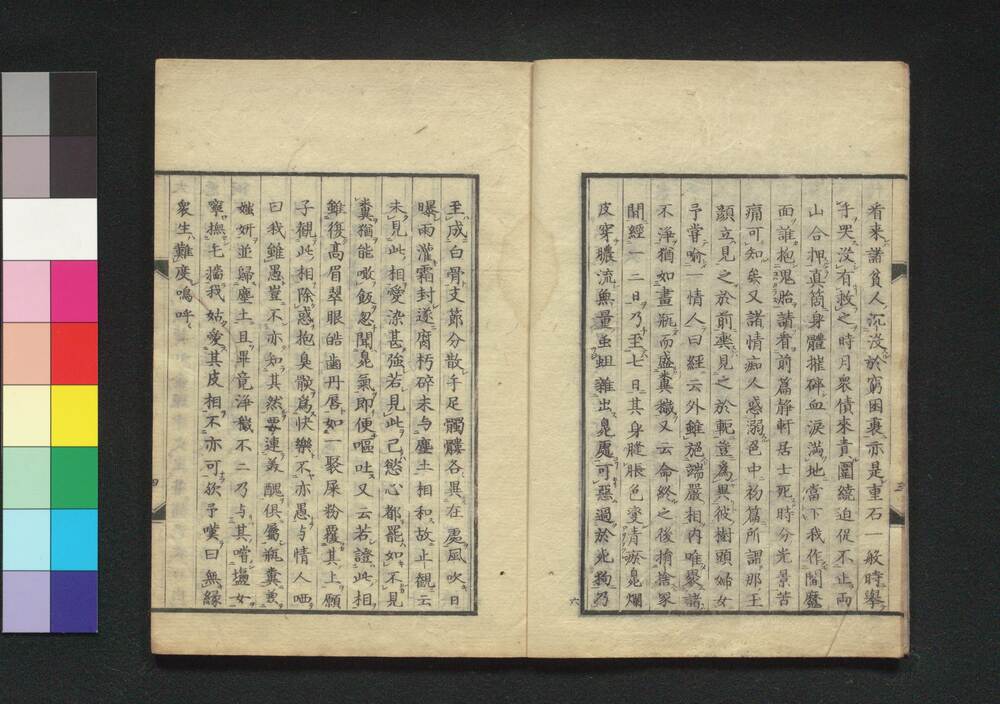 看来諸貧人沉没於窮困裏亦是重石一般時舉
手哭没有救之時月衆債来責圍繞迫促不止両
山合押真箇身體摧碎血涙満地當下我作閻魔
面誰抱鬼胎請看前篇静軒居士死時分光景苦
痛可知矣又諸情痴人惑溺色中初篇所謂那王
顔立見之於前乘見之於軛豈為異彼樹頭婦女
予嘗喻一情人曰經云外雖施端嚴相内唯聚諸
不淨猶如畫瓶而盛糞穢又云命終之後捐捨冢
間經一二日乃至七日其身膖脹色變青瘀臭爛
皮穿膿流無量虫蛆雜出臭處可惡過於死狗乃
至成白骨支節分散手足髑髏各異在處風吹日
曝雨灌霜封遂腐朽碎末与塵土相和故止観云
未見此相愛染甚強若見此已慾心都罷如不見
糞猶能噉飯忽聞臭氣即便嘔吐又云若證此相
雖復髙眉翠眼皓齒丹唇如一聚屎粉覆其上願
子観此相除惑抱臭骸為快樂不亦愚与情人哂
曰我雖愚豈不亦知其然要連美醜俱屬瓶糞
媸妍並歸塵土且畢竟浄穢不二乃与其嘗塩女
寧撫七擋我姑愛其皮相不亦可欤予嘆曰無縁
衆生難度嗚呼
三
四
六